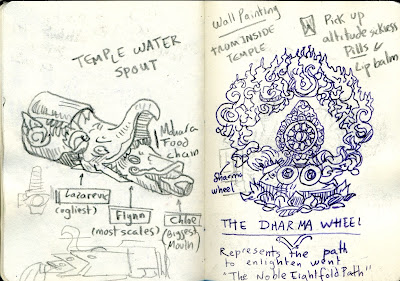 TEMPLE WATER
SPOUT
Makara
Food
chain
Lazarevic
(ugliest)
Flynn
(most scales)
Chloe
(Biggest
Mouth)
Wall Painting
FROM INSIDE
TEMPLE
Pick up
altitude sickness
Pills
Lip balm
Dharma
wheel
THE DHARMA WHEEL
Represents the path
to enlightenment
"The Noble Eightfold Path"